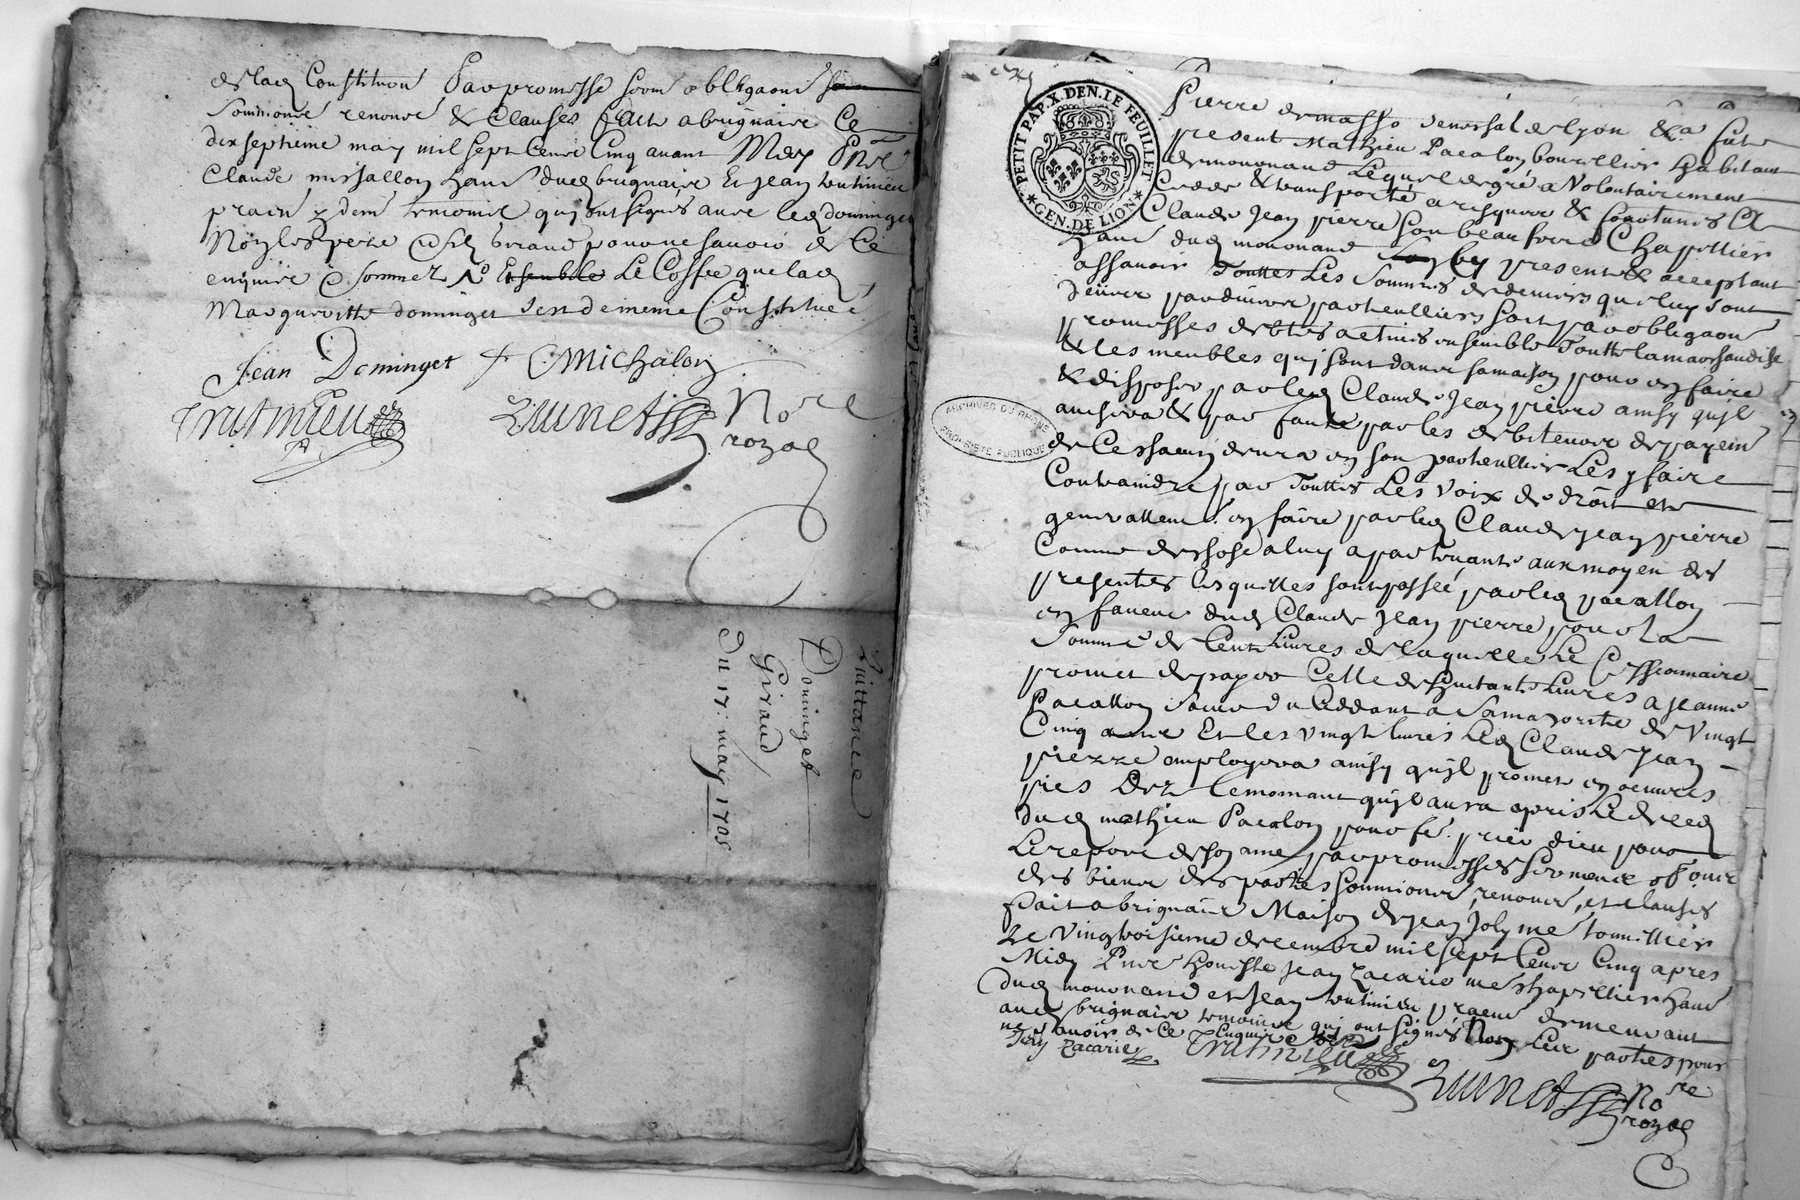 de lad Constituon Par promesse serm obligaons
Soumions renons & Clauses fait a brignaire Ce
dix septieme may mil sept Cens Cinq avant Midy Pnts
Claude michallon habt dud brignaire Et jean trutmieu
prain y demt temoins qui ont signés avec led dominget
Non les pere & fils Giraud pour ne savoir de Ce
enquire & sommez No Ensemble Le Coffre que lad
Margueritte dominget s'est de meme Constitué
Jean Dominget C Michalon
Trutmieu
Brunet Nore
royal
Quittance
Dominget
Giraud
Du 17: may 1705
PETIT PAP. X. DEN. LE FEUILLET
GEN. DE LION
ARCHIVES DU RHONE
PROPRIETE PUBLIQUE
Pierre de masso senechal de lyon &a fut
present Mathieu Pacalon bourellier habitant
de mononand Lequel de gré a Volontairement
Cedde & transporté a risques & fortunes A
Claude Jean pierre son beau frere Chapellier
habt dud mononand Luy present & acceptant
assavoir Touttes Les Sommes de deniers que luy sont
deües par divers particulliers soit par obligaons
promesses debtes actives ensemble Toutte la marchandise
& les meubles qui sont dans sa maison pour en faire
& disposer par led Claude Jean pierre ainsy quil
avisera & par faute par les debiteurs de payemt
de Ce chacun deux en son particullier Les y faire
Contraindre par Touttes Les Voix de droit et
generallemt en faire par led Claude Jean pierre
Comme de chose a luy apartenante aux moyen des
presentes lesquelles sont passée par led pacallon
en faveur dud Claude Jean pierre pour la
somme de Cent Livres de laquelle Le Cessionnaire
promet de payer Celle de huitante Livres a Jeanne
Pacallon soeur du Ceddant a sa majorité de Vingt
Cinq ans Et les vingt livres Led Claude Jean
pierre employera ainsy quil promet en oeuvres
pies Dez le momant quil aura apris le decedz
dud mathieu Pacalon pour fe prier dieu pour
Le repos de son ame par promesses serments obons
des biens des parties soumions, renons, et clauses
fait a brignaire Maison de Jean Joly me tonnellier
Le Vingtroisieme decembre mil sept Cens Cinq apres
Midy Pnts honeste Jean Zacarie me chapellier habt
dud mononand et Jean trutmieu prain demeurant
aud brignaire temoins qui ont signés Non Les parties pour
ne savoir de Ce Enquire
Jean Zacarie Trutmieu
Brunet Nore
royal